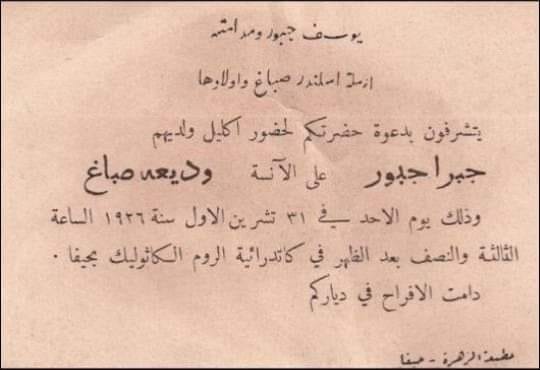 يوسف جبور ومدامته
ارملة اسكندر صباغ واولادها
يتشرفون بدعوة حضرتكم لحضور اكليل ولديهم
جبرا جبور على الآنسة وديعه صباغ
وذلك يوم الاحد في ٣١ تشرين الاول سنة ١٩٢٦ الساعة
الثالثة والنصف بعد الظهر في كاتدرائية الروم الكاثوليك بحيفا ٠
دامت الافراح في دياركم
مطبعة الزهرة - حيفا